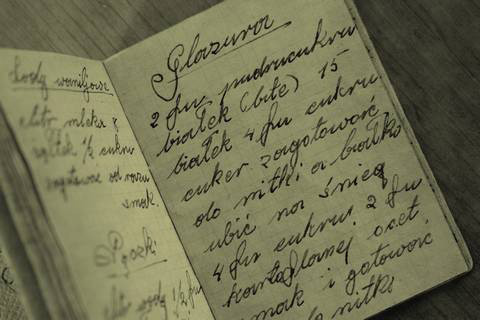 Lody waniljowe
mleka 8
żółtek ½ cukru
zagotować od razu
smak.
Pączki
½ fu
Glazura
2 fu pudrucukru
białek (bite) 15
białek 4 fu cukru
cukier zagotować
do nitki a białko
ubić na śnieg
4 fu cukru 2 fu
kartoflanej ocet
smak i gotować
do nitki